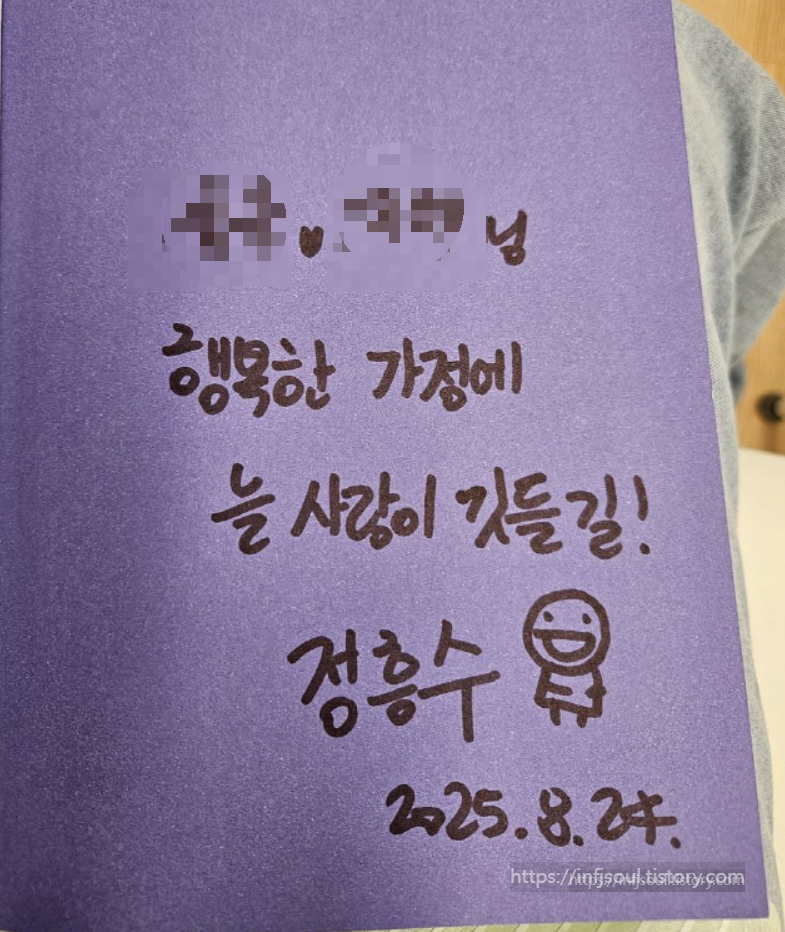 ♥ 님
행복한 가정에
늘 사랑이 깃들길!
정흥수
2025.8.24.
https://infjsoul.tistory.com
https://infjsoul.tistory.com